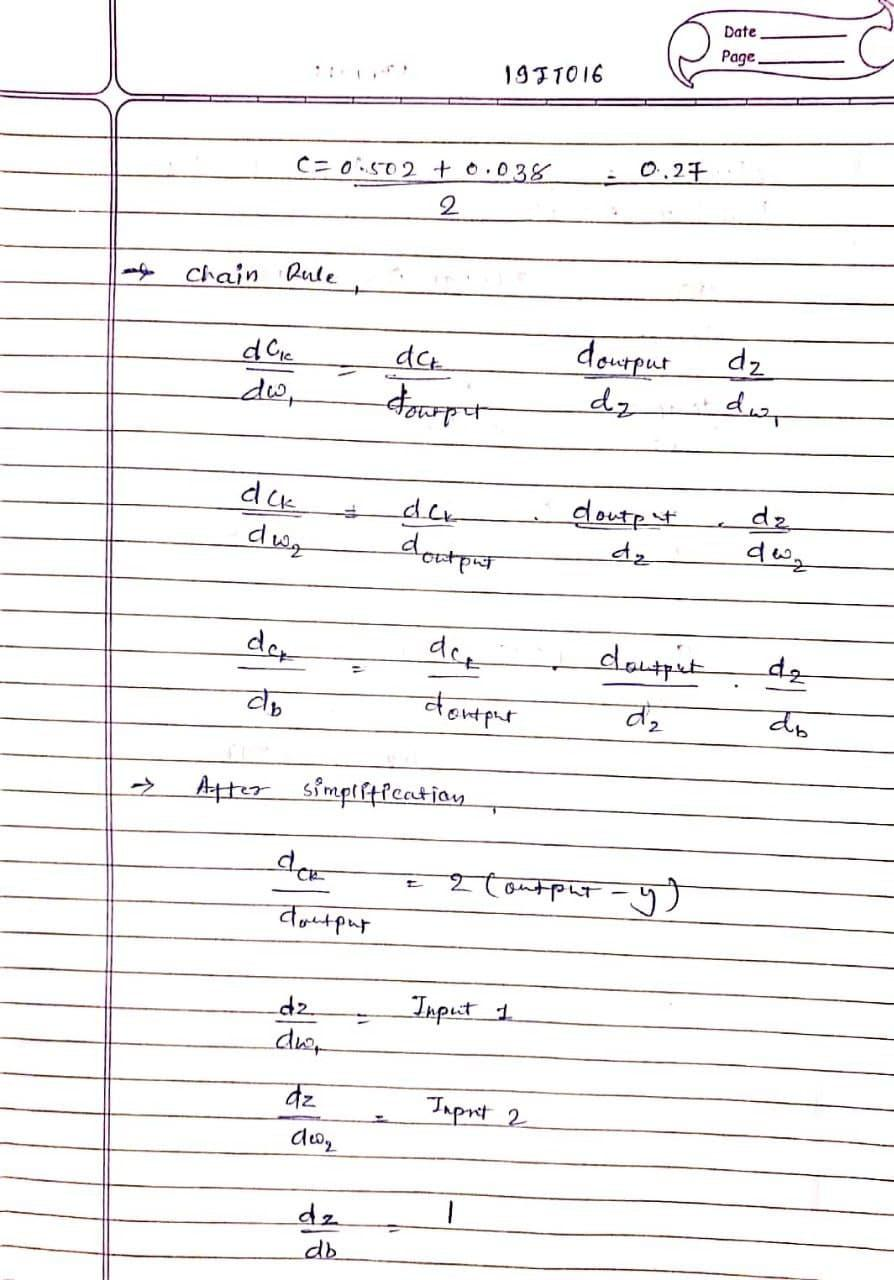 Date
Page
19IT016
C = 0.502 + 0.038 / 2 = 0.27
→ Chain Rule,
dCk/dw1 = dCk/doutput doutput/dz dz/dw1
dCk/dw2 = dCk/doutput . doutput/dz . dz/dw2
dCk/db = dCk/doutput . doutput/dz . dz/db
→ After simplification,
dCk/doutput = 2 (output - y)
dz/dw1 = Input 1
dz/dw2 = Input 2
dz/db = 1